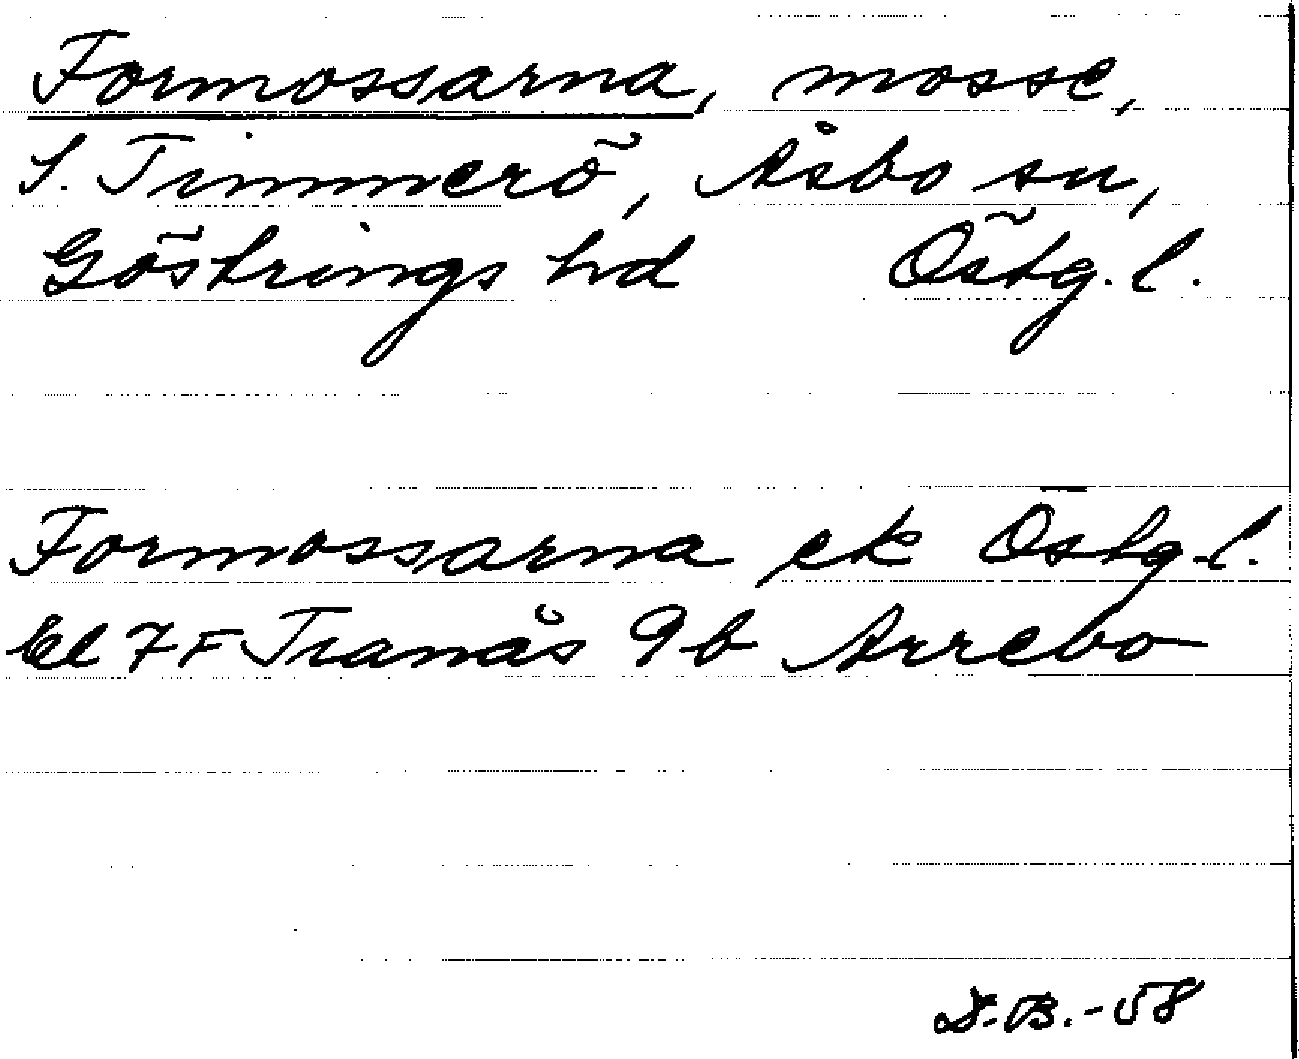 Formossarna, mosse,
S. Timmerö, Åsbo sn,
Göstrings hd Östg. l.
Formossarna ek Östg. l.
Bl 7F Tranås 9b Arrebo
S.B.-58